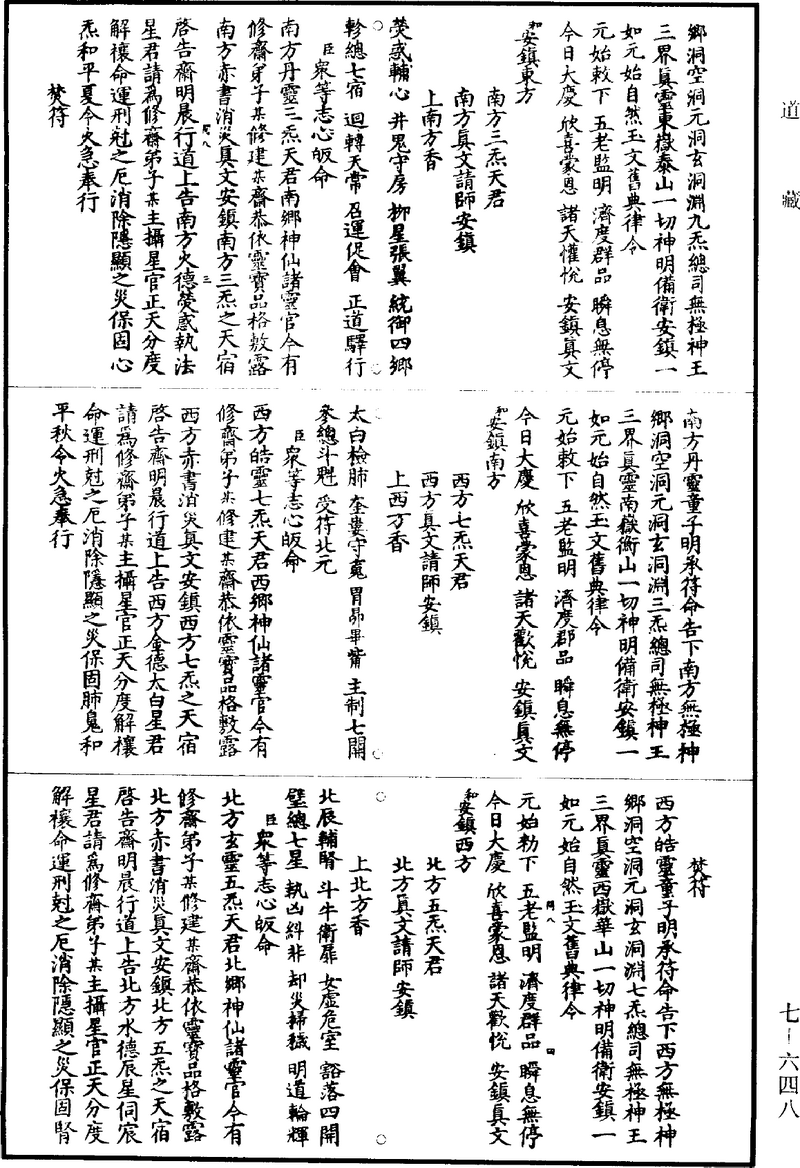 道藏
鄉洞空洞元洞玄洞淵九炁總司無極神王
三界眞靈東嶽泰山一切神明備衛安鎮一
如元始自然玉文舊典律令
元始敕下 五老監明 濟度群品 瞬息無停
今日大慶 欣喜蒙恩 諸天懽悅 安鎮眞文
和安鎮東方
南方三炁天君
南方眞文請師安鎮
上南方香
熒惑輔心 井鬼守房 柳星張翼 統御四鄉
軫總七宿 迴轉天常 召運促會 正道驛行
臣衆等志心皈命
南方丹靈三炁天君南鄉神仙諸靈官今有
修齋弟子某修建某齋恭依靈寶品格敷露
南方赤書消災眞文安鎮南方三炁之天宿
啓告齋明晨行道上告南方火德熒惑執法
星君請爲修齋弟子某主攝星官正天分度
解禳命運刑尅之厄消除隱顯之災保固心
炁和平夏令火急奉行
焚符
南方丹靈童子明承符命告下南方無極神
鄉洞空洞元洞玄洞淵三炁總司無極神王
三界眞靈南嶽衡山一切神明備衛安鎮一
如元始自然玉文舊典律令
元始敕下 五老監明 濟度郡品 瞬息無停
今日大慶 欣喜蒙恩 諸天歡悅 安鎮眞文
和安鎮南方
西方七炁天君
西方眞文請師安鎮
上西方香
太白檢肺 奎婁守寬 胃昴畢觜 主制七關
參總斗魁 受符北元
臣衆等志心皈命
西方皓靈七炁天君西鄉神仙諸靈官今有
修齋弟子某修建某齋恭依靈寶品格敷露
西方赤書消災眞文安鎮西方七炁之天宿
啓告齋明晨行道上告西方金德太白星君
請爲修齋弟子某主攝星官正天分度解禳
命運刑尅之厄消除隱顯之災保固肺鬼和
平秋令火急奉行
焚符
西方皓靈童子明承符命告下西方無極神
鄉洞空洞元洞玄洞淵七炁總司無極神王
三界眞靈西嶽華山一切神明備衛安鎮一
如元始自然玉文舊典律令
元始勑下 五老監明 濟度群品 瞬息無停
今日大慶 欣喜蒙恩 諸天歡悅 安鎮眞文
和安鎮西方
北方五炁天君
北方眞文請師安鎮
上北方香
北辰輔腎 斗牛衛扉 女虛危室 豁落四開
壁總七星 執凶糾非 却災掃穢 明道輪輝
臣衆等志心皈命
北方玄靈五炁天君北鄉神仙諸靈官今有
修齋弟子某修建某齋恭依靈寶品格敷露
北方赤書消災眞文安鎮北方五炁之天宿
啓告齋明晨行道上告北方水德辰星伺宸
星君請爲修齋弟子某主攝星官正天分度
解禳命運刑尅之厄消除隱顯之災保固腎
七–六四八